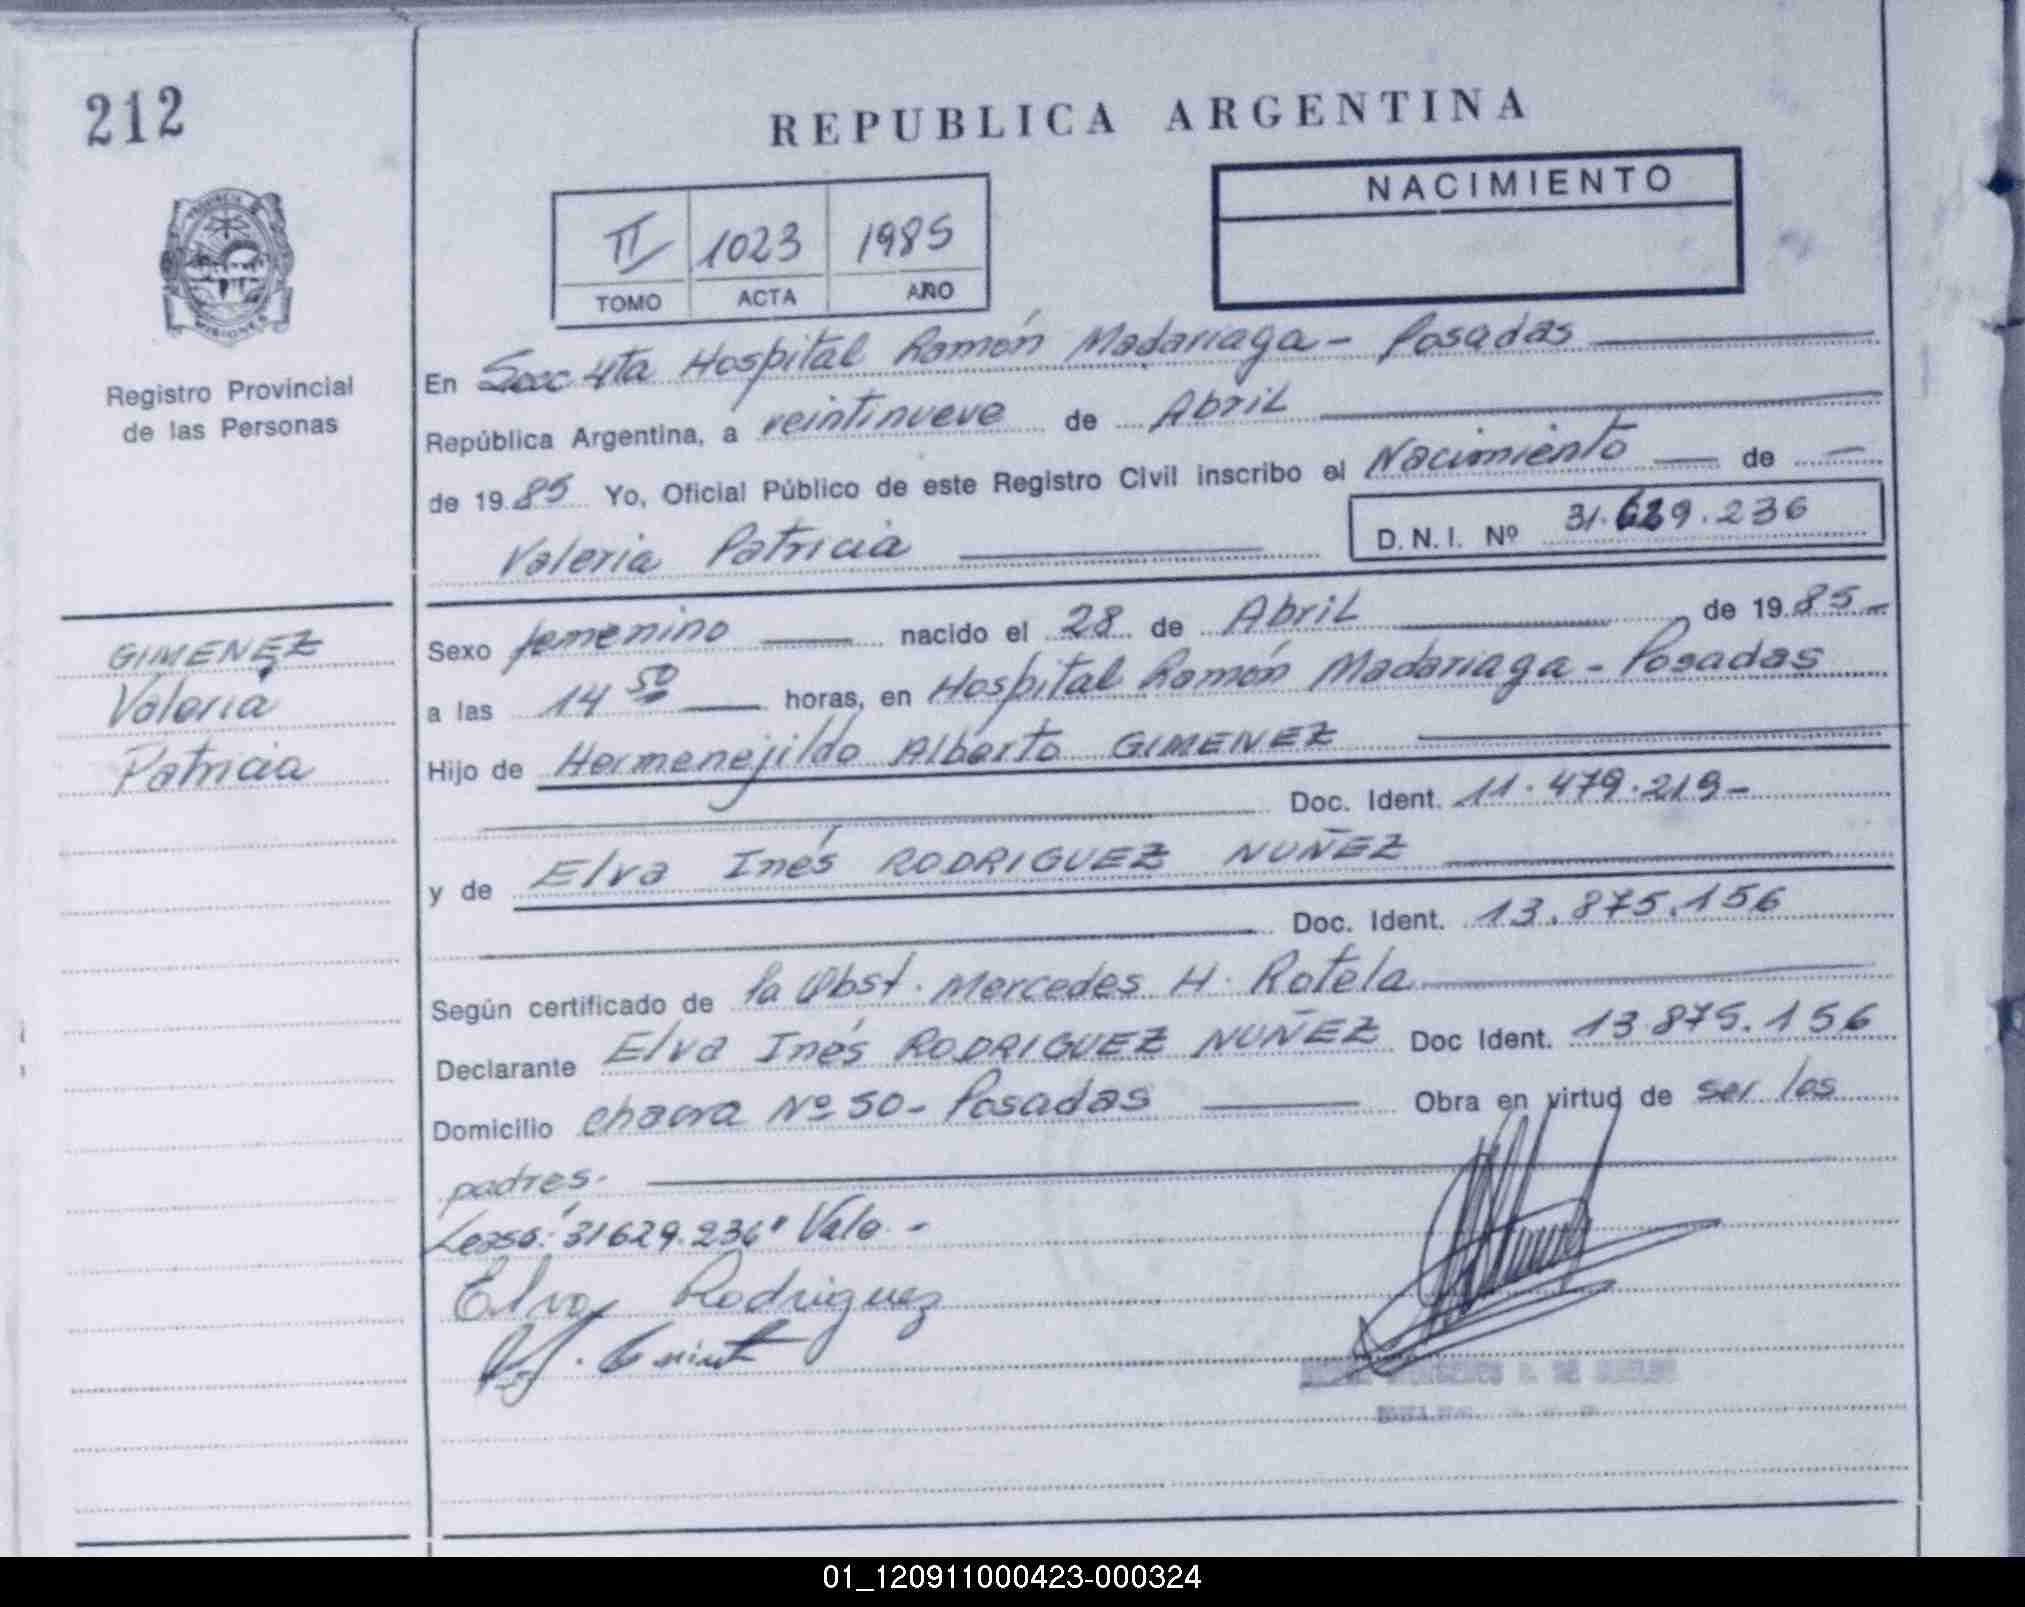 212
REPUBLICA ARGENTINA
NACIMIENTO
II 1023 1985
TOMO ACTA AÑO
Registro Provincial
de las Personas
En Secc 4ta Hospital Ramón Madariaga - Posadas
República Argentina, a veintinueve de Abril
de 19 85 Yo, Oficial Público de este Registro Civil inscribo el Nacimiento — de —
Valeria Patricia D.N.I. Nº 31.629.236
GIMENEZ
Valeria
Patricia
Sexo femenino nacido el 28 de Abril de 19 85
a las 14 50 horas, en Hospital Ramón Madariaga - Posadas
Hijo de Hermenejildo Alberto GIMENEZ
Doc. Ident. 11.479.219-
y de Elva Inés RODRIGUEZ NUÑEZ
Doc. Ident. 13.875.156
Según certificado de la Obst. Mercedes H. Rotela
Declarante Elva Inés RODRIGUEZ NUÑEZ Doc Ident. 13.875.156
Domicilio chacra Nº 50 - Posadas Obra en virtud de ser los
padres.
"31629.236" Vale.-
Elva Rodriguez
01_120911000423-000324